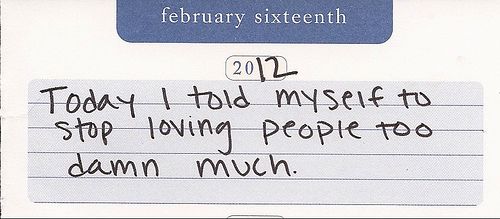 february sixteenth
2012
Today I told myself to
stop loving people too
damn much.